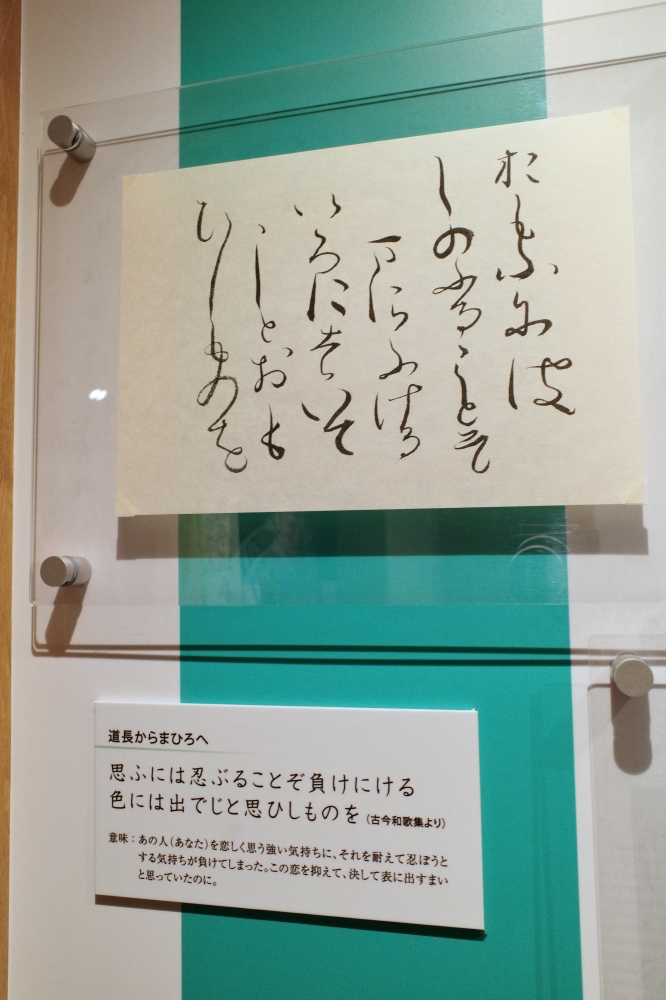 おもふには
しのふることそ
まけにける
いろにはいて
しとおも
ひしものを
道長からまひろへ
思ふには忍ぶることぞ負けにける
色には出でじと思ひしものを（古今和歌集より）
意味：あの人（あなた）を恋しく思う強い気持ちに、それを耐えて忍ぼうと
する気持ちが負けてしまった。この恋を抑えて、決して表に出すまい
と思っていたのに。